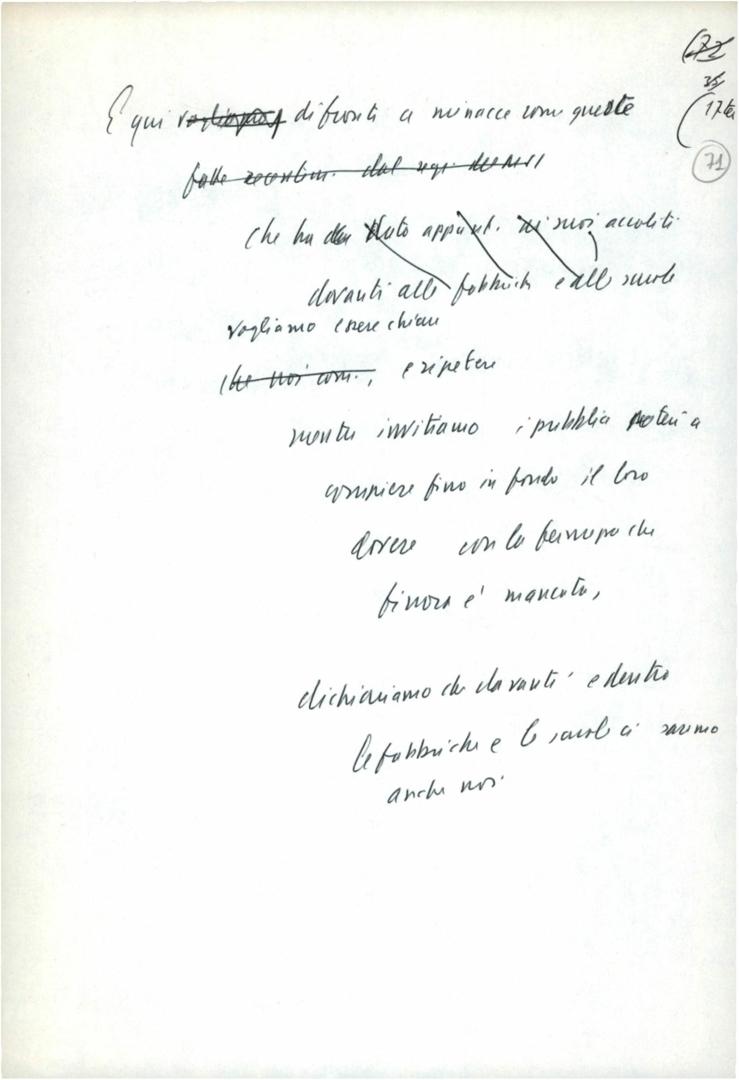 72
35
(17ter
71
E qui vogliamo di fronte a minacce come queste
fatte recentem. dal segr. del MSI
che ha dato appunt. ai suoi accoliti
davanti alle fabbriche e alle scuole
vogliamo essere chiari
che noi com., e ripetere
mentre invitiamo i pubblici poteri a
compiere fino in fondo il loro
dovere con la fermezza che
finora è mancata,
dichiariamo che davanti e dentro
le fabbriche e le scuole ci saremo
anche noi